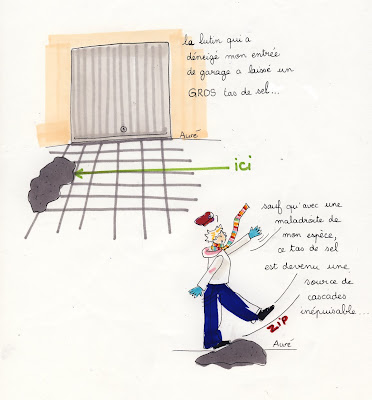 la lutin qui a
déneigé mon entrée
de garage a laissé un
GROS tas de sel...
Auré
ici
sauf qu'avec une
maladroite de
mon espèce,
ce tas de sel
est devenu une
source de
cascades
inépuisable...
ZIP
Auré